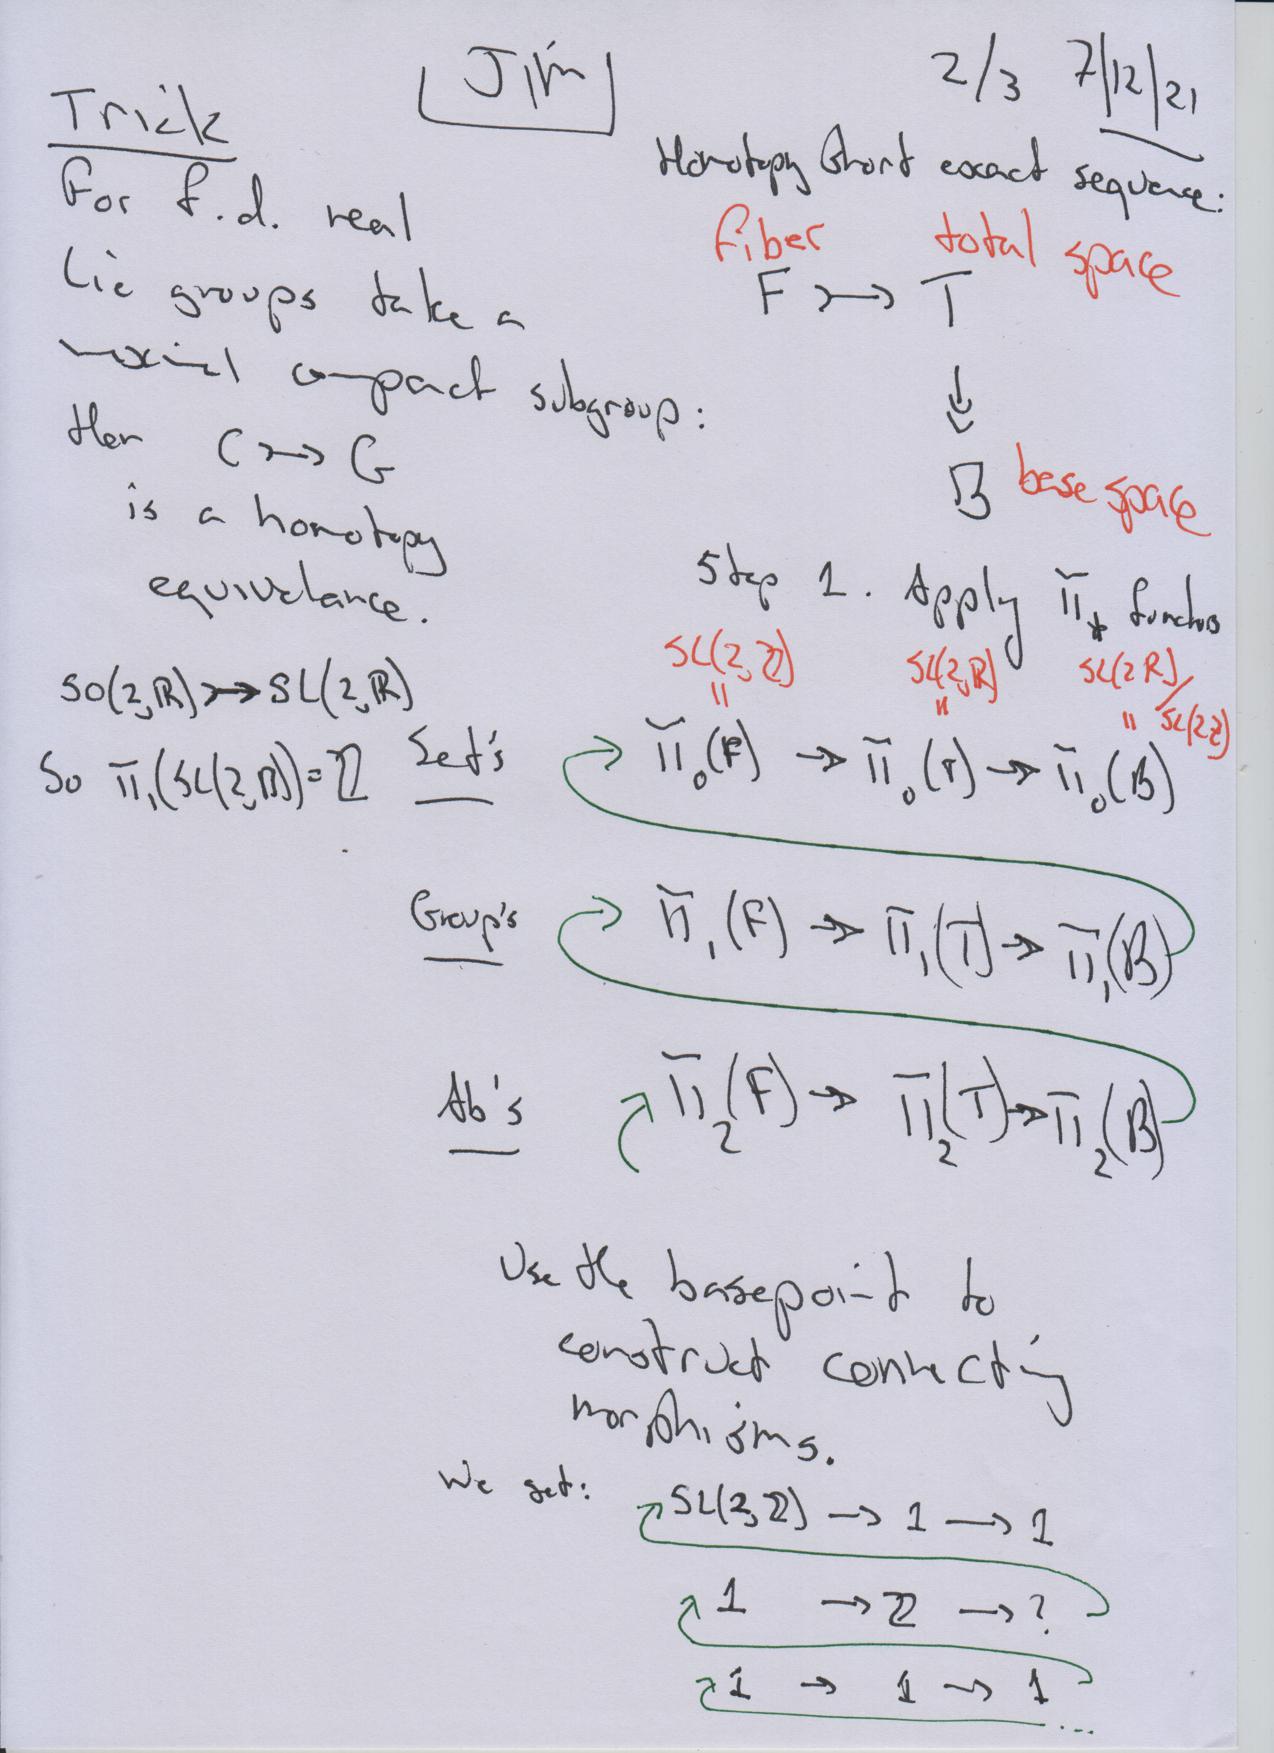 Jim
2/3 7/12/21
Trick
For f.d. real
Lie groups take a
maximal compact subgroup:
then C ↣ G
is a homotopy
equivalance.
SO(2,ℝ) ↣ SL(2,ℝ)
So π₁(SL(2,ℝ)) = ℤ
Homotopy short exact sequence:
fiber total space
F ↣ T
↡
B base space
Step 1. Apply π⁎ functors
SL(2,ℤ) SL(2,ℝ) SL(2,ℝ)/SL(2,ℤ)
॥ ॥ ॥
Set's π₀(F) → π₀(T) → π₀(B)
Group's π₁(F) → π₁(T) → π₁(B)
Ab's π₂(F) → π₂(T) → π₂(B)
Use the basepoint to
construct connecting
morphisms.
We get: SL(2,ℤ) → 1 → 1
1 → ℤ → ?
1 → 1 → 1
...